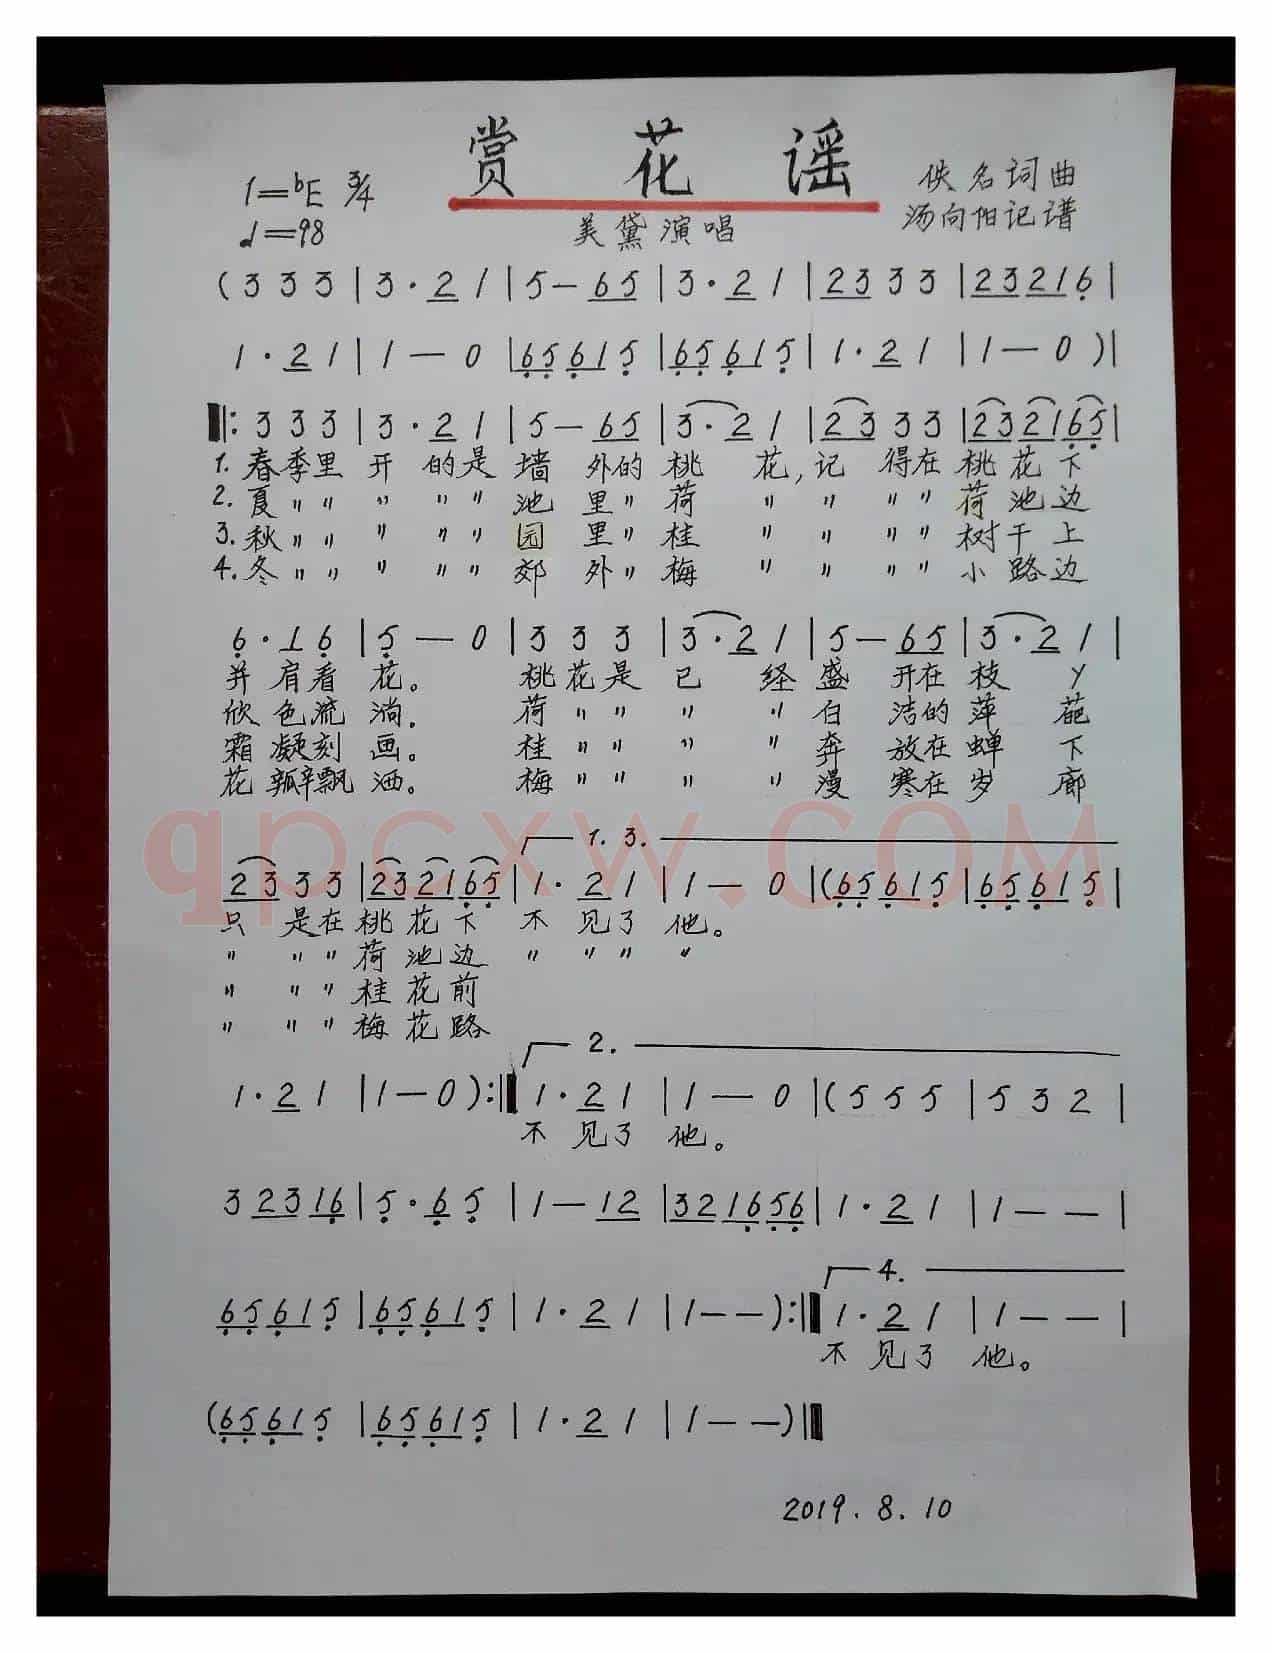 赏 花 谣
1=♭E 3/4
♩=98
佚名词曲
美黛演唱
汤向阳记谱
(3 3 3 | 3 · 2 1 | 5 — 6 5 | 3 · 2 1 | 2 3 3 3 | 2 3 2 1 6 |
1 · 2 1 | 1 — 0 | 6 5 6 1 5 | 6 5 6 1 5 | 1 · 2 1 | 1 — 0 )|
‖: 3 3 3 | 3 · 2 1 | 5 — 6 5 | 3 · 2 1 | 2 3 3 3 | 2 3 2 1 6 5 |
1. 春季里 开 的是 墙 外的 桃 花, 记 得在 桃 花 下
2. 夏 〃 〃 〃 〃 〃 池 里 〃 荷 〃 〃 〃 〃 荷 池 边
3. 秋 〃 〃 〃 〃 〃 园 里 〃 桂 〃 〃 〃 〃 树 干 上
4. 冬 〃 〃 〃 〃 〃 郊 外 〃 梅 〃 〃 〃 〃 小 路 边
6 · 1 6 | 5 — 0 | 3 3 3 | 3 · 2 1 | 5 — 6 5 | 3 · 2 1 |
并 肩看 花。 桃花是 已 经 盛 开在 枝 丫
欣 色流 淌。 荷 〃 〃 〃 〃 白 洁的 萍 葩
霜 凝刻 画。 桂 〃 〃 〃 〃 奔 放在 蝉 下
花 瓣飘 洒。 梅 〃 〃 〃 〃 漫 寒在 岁 廊
qpcxw.COM
1. 3.
2 3 3 3 | 2 3 2 1 6 5 | 1 · 2 1 | 1 — 0 |(6 5 6 1 5 | 6 5 6 1 5 |
只 是在 桃 花 下 不 见了 他。
〃 〃 〃 荷 池 边 〃 〃 〃 〃
〃 〃 〃 桂 花 前
〃 〃 〃 梅 花 路
2.
1 · 2 1 | 1 — 0 ):‖ 1 · 2 1 | 1 — 0 |( 5 5 5 | 5 3 2 |
不 见了 他。
3 2 3 1 6 | 5 · 6 5 | 1 — 1 2 | 3 2 1 6 5 6 | 1 · 2 1 | 1 — — |
4.
6 5 6 1 5 | 6 5 6 1 5 | 1 · 2 1 | 1 — — ):‖ 1 · 2 1 | 1 — — |
不 见了 他。
(6 5 6 1 5 | 6 5 6 1 5 | 1 · 2 1 | 1 — — )‖
2019. 8. 10